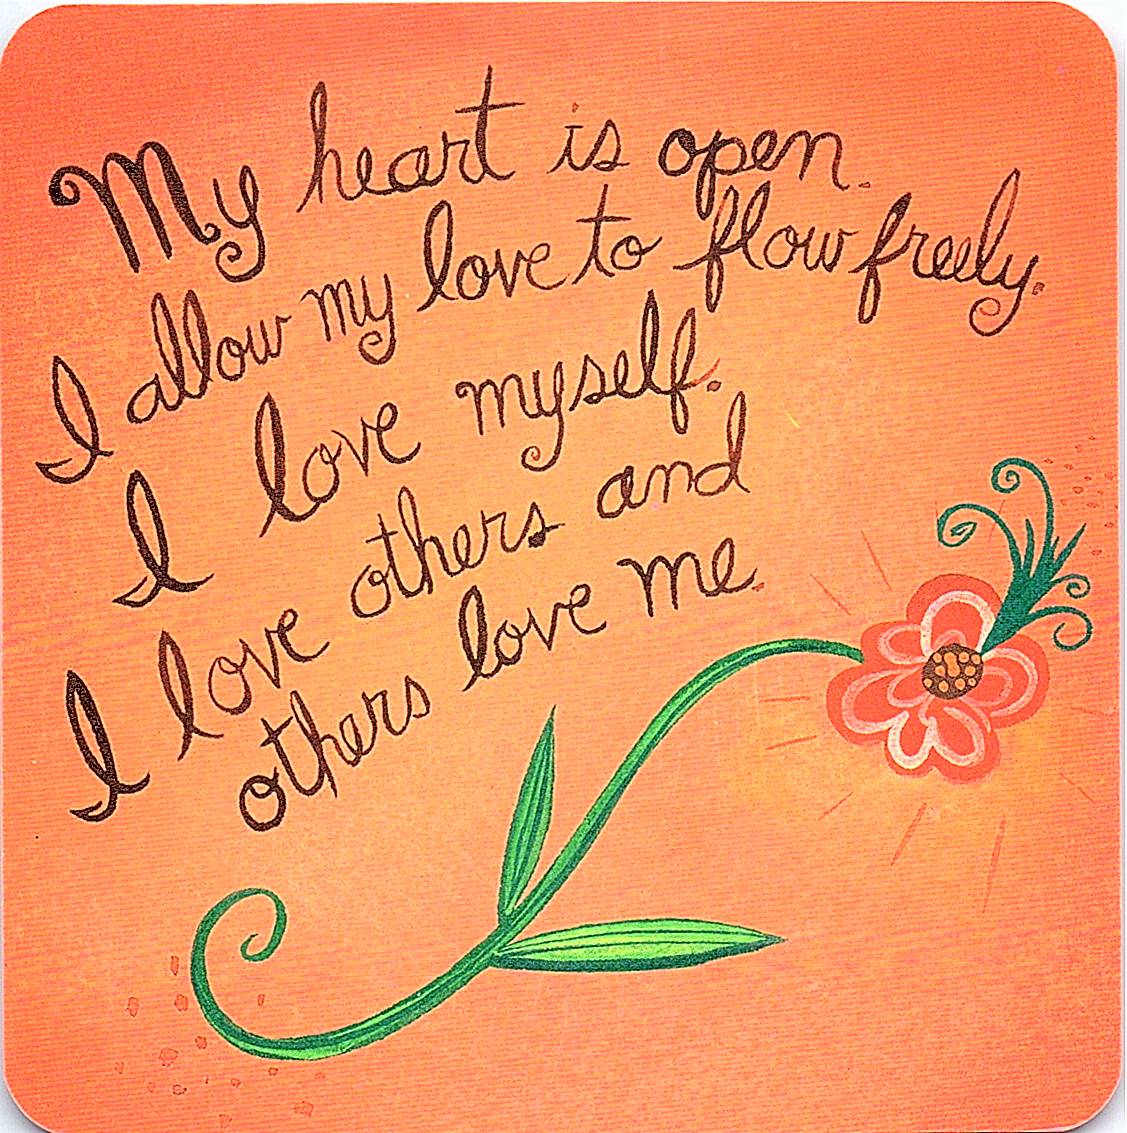 My heart is open.
I allow my love to flow freely.
I love myself.
I love others and
others love me.